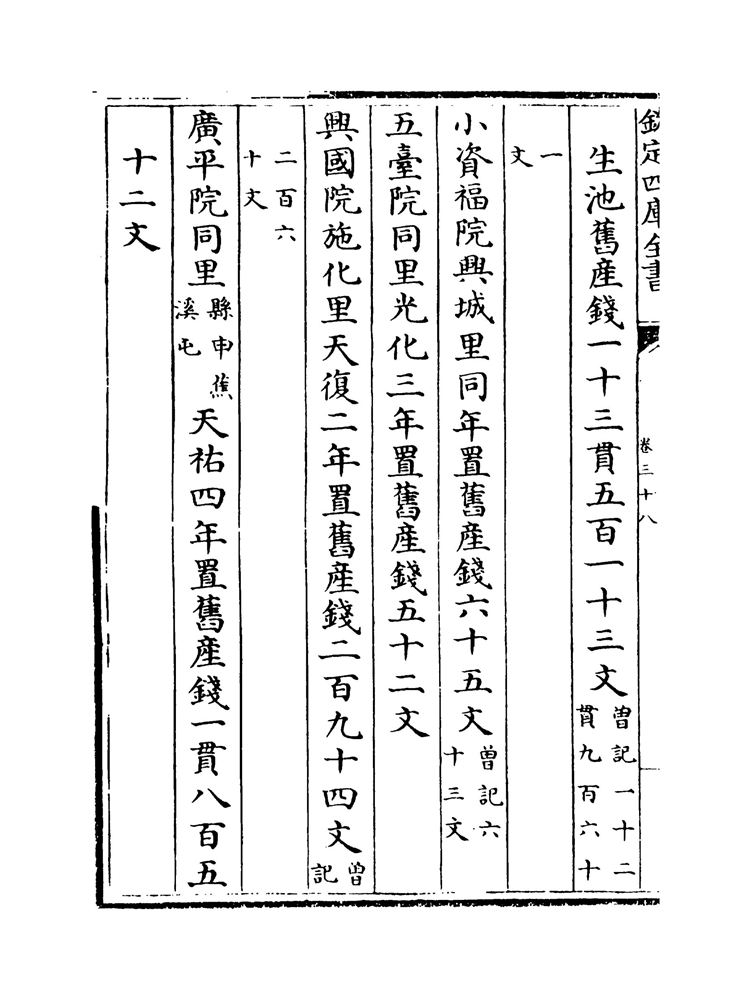 欽定四庫全書
卷三十八
生池舊産錢一十三貫五百一十三文曽記一十二貫九百六十
一文
小資福院興城里同年置舊産錢六十五文曽記六十三文
五臺院同里光化三年置舊産錢五十二文
興國院施化里天復二年置舊産錢二百九十四文曽記
二百六十文
廣平院同里縣申蕉溪屯天祐四年置舊産錢一貫八百五
十二文